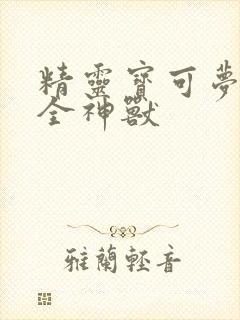 精靈寶可夢
全神獸
雅蘭輕音